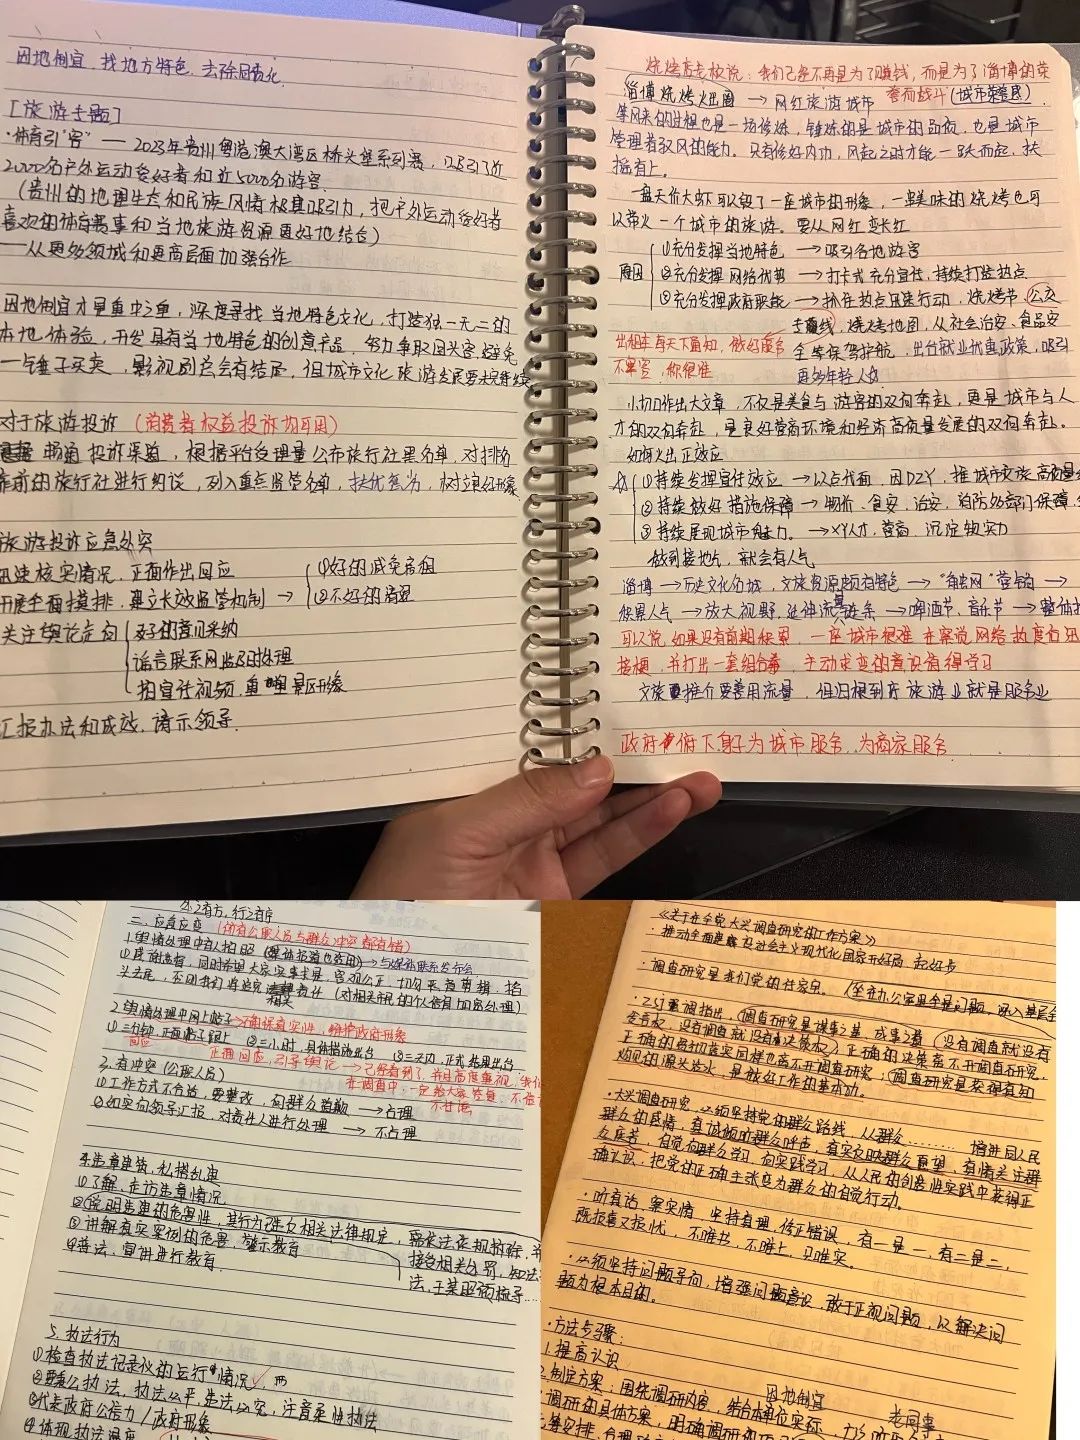 因地制宜、找地方特色、去除同质化
[旅游专题]
·体育引"客" —— 2023年贵州粤港澳大湾区桥头堡系列赛，吸引了近
2000名户外运动爱好者和近5000名游客.
(贵州的地理生态和民族风情极具吸引力，把户外运动爱好者
喜欢的体育赛事和当地旅游资源更好地结合)
——从更多领域和更高层面加强合作
因地制宜才是重中之重，深度寻找当地特色文化，打造独一无二的
本地体验，开发具有当地特色的创意产品，努力争取回头客，避免
一锤子买卖，影视剧总会有结尾，但城市文化旅游发展要
对于旅游投诉 (消费者权益投诉均可用)
畅通投诉渠道，根据平台受理量公布旅行社黑名单，对排名
靠前的旅行社进行约谈，列入重点监管名单，扶优惩劣，树立良好形象
旅游投诉应急处突
迅速核实情况，正面作出回应
开展全面摸排，建立长效监管机制 →
①好的减免房租
②不好的清退
关注舆论走向
好的意见采纳
谣言联系网监及时处理
拍宣传视频，重塑景区形象
汇报办法和成效，请示领导.
烧烤店老板说：我们已经不再是为了赚钱，而是为了淄博的荣
誉而战斗 (城市荣誉感)
淄博烧烤火出圈 → 网红旅游城市
等风来的过程也是一场修炼，锤炼的是城市的品质，也是城市
管理者驭风的能力。只有修好内功，风起之时才能一跃而起，扶
摇而上。
一盘天价大虾可以毁了一座城市的形象，一串美味的烧烤也可
以带火一个城市的旅游。要从网红变长红
原因
①充分发挥当地特色 → 吸引各地游客
②充分发挥网络优势 → 打卡式充分宣传，持续打造热点
③充分发挥政府职能 → 抓住热点迅速行动，烧烤节、公交
专线，烧烤地图，从社会治安、食品安
全等保驾护航，出台就业优惠政策，吸引
更多年轻人
出租车每天下通知，做好服务
不宰客，你很难
小切口作出大文章，不仅是美食与游客的双向奔赴，更是城市与人
才的双向奔赴，是良好营商环境和经济高质量发展的双向奔赴。
如何火出正效应
①持续发挥宣传效应 → 以点代面，因DZY，推城市文旅高质量
②持续做好措施保障 → 物价、食安、治安、消防多部门保障
③持续展现城市魅力。 → XY人才，营商，沉淀软实力
做到接地气，就会有人气
淄博 → 历史文化名城，文旅资源颇有特色 → 营销 →
积累人气 → 放大视野、延伸流量链条 → 啤酒节、音乐节 → 整体
可以说，如果没有前期积累，一座城市很难在察觉网络热度后迅
接梗，并打出一套组合拳，主动求变的意识值得学习
文旅推介要善用流量，但归根到底旅游业就是服务业
政府俯下身子为城市服务、为商家服务
办之有方，行之有序
二、应急应变 (所有公职人员与群众冲突都有错)
1.舆情处理中有人拍照 (媒体报道也套用) → 与媒体联系发布会
①感谢监督，同时希望大家实事求是，客观公正，切勿平音剪辑，掐
头去尾，否则我们将追究相关责任 (对相关市民的个人信息加密处理)
2.舆情处理中网上帖子 → 确保真实性，维护政府形象
①三分钟，正面帖子跟上 ②三小时，具体措施出台 ③三天内，正式结果出台
正面回应，引导舆论 → 已经看到了，并且高度重视，我们
在调查中，一定给大家答复，不信
不传谣
3.有冲突 (公职人员)
①工作方式不合适，要整改，向群众道歉 → 占理
②如实向领导汇报，对责任人进行处理 → 不占理
4.违章建筑，私搭乱建
①了解、走访违章情况
②说明违建的危害性，其行为已违反相关法律规定，需依法依规拆除，并
接受相关处罚，知法
③讲解真实案例的危害，警示教育
④普法，宣讲进行教育
5.执法行为
①检查执法记录仪的运行情况
执法公平，违法必究，注意柔性执法
③代表政府公信力/政府形象
④体现执法温度
《关于在全党大兴调查研究的工作方案》
·推动全面建设社会主义现代化国家开好局、起好步
·调查研究是我们党的传家宝。 (坐在办公室里全是问题，深入基层全
·ZSJ重调指出，调查研究是谋事之基、成事之道 (没有调查就没有
发言权，没有调查就没有决策权)，正确的决策离不开调查研究，
正确的贯彻落实同样也离不开调查研究；调查研究是获得真知
灼见的源头活水，是做好工作的基本功。
·大兴调查研究，必须坚持党的群众路线，从群众……… 增进同人民
群众的感情，真诚倾听群众呼声，真实反映群众愿望、真情关注群
众疾苦，自觉向群众学习、向实践学习，从人民的创造性实践中获得正
确认识，把党的正确主张变为群众的自觉行动。
·听真话、察实情，坚持真理、修正错误，有一是一、有二是二，
既报喜又报忧，不唯书、不唯上、只唯实。
·必须坚持问题导向，增强问题意识，敢于正视问题，以解决问
题为根本目的。
·方法步骤：
1.提高认识
因地制宜
2.制定方案：围绕调研内容，结合本单位实际
调研的具体方案，明确调研